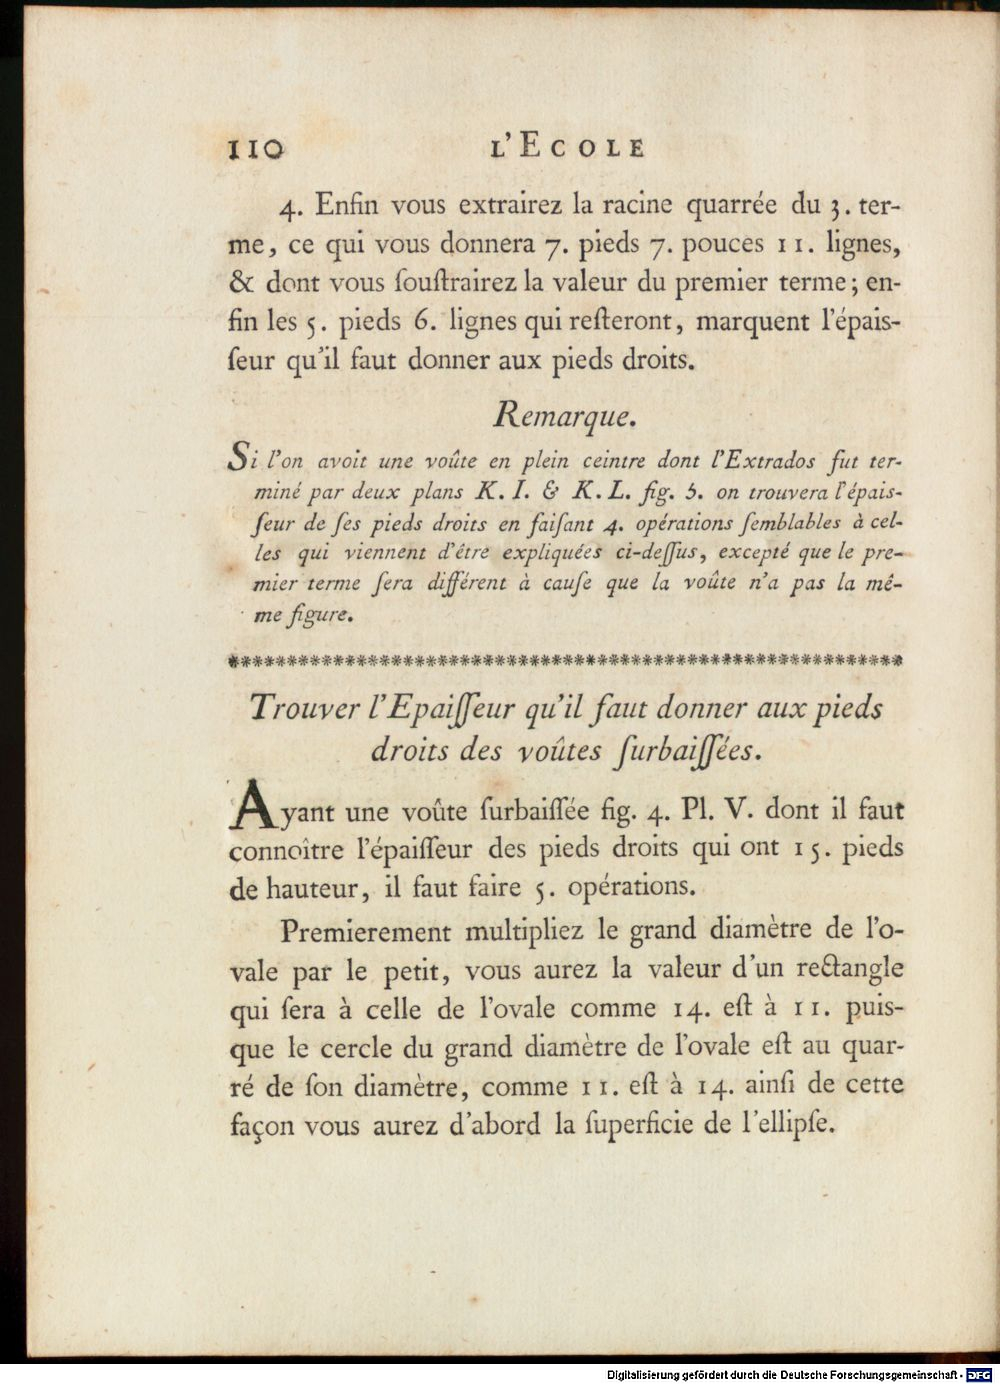 110 L'ECOLE
4. Enfin vous extrairez la racine quarrée du 3. ter-
me, ce qui vous donnera 7. pieds 7. pouces 11. lignes,
& dont vous ſouſtrairez la valeur du premier terme; en-
fin les 5. pieds 6. lignes qui reſteront, marquent l'épaiſ-
ſeur qu'il faut donner aux pieds droits.
Remarque.
Si l'on avoit une voûte en plein ceintre dont l'Extrados fut ter-
miné par deux plans K. I. & K. L. fig. 3. on trouvera l'épaiſ-
ſeur de ſes pieds droits en faiſant 4. opérations ſemblables à cel-
les qui viennent d'être expliquées ci-deſſus, excepté que le pre-
mier terme ſera différent à cauſe que la voûte n'a pas la mê-
me figure.
Trouver l'Epaiſſeur qu'il faut donner aux pieds
droits des voûtes ſurbaiſſées.
Ayant une voûte ſurbaiſſée fig. 4. Pl. V. dont il faut
connoître l'épaiſſeur des pieds droits qui ont 15. pieds
de hauteur, il faut faire 5. opérations.
Premierement multipliez le grand diamètre de l'o-
vale par le petit, vous aurez la valeur d'un rectangle
qui ſera à celle de l'ovale comme 14. eſt à 11. puiſ-
que le cercle du grand diamètre de l'ovale eſt au quar-
ré de ſon diamètre, comme 11. eſt à 14. ainſi de cette
façon vous aurez d'abord la ſuperficie de l'ellipſe.
Digitalisierung gefördert durch die Deutsche Forschungsgemeinschaft - DFG